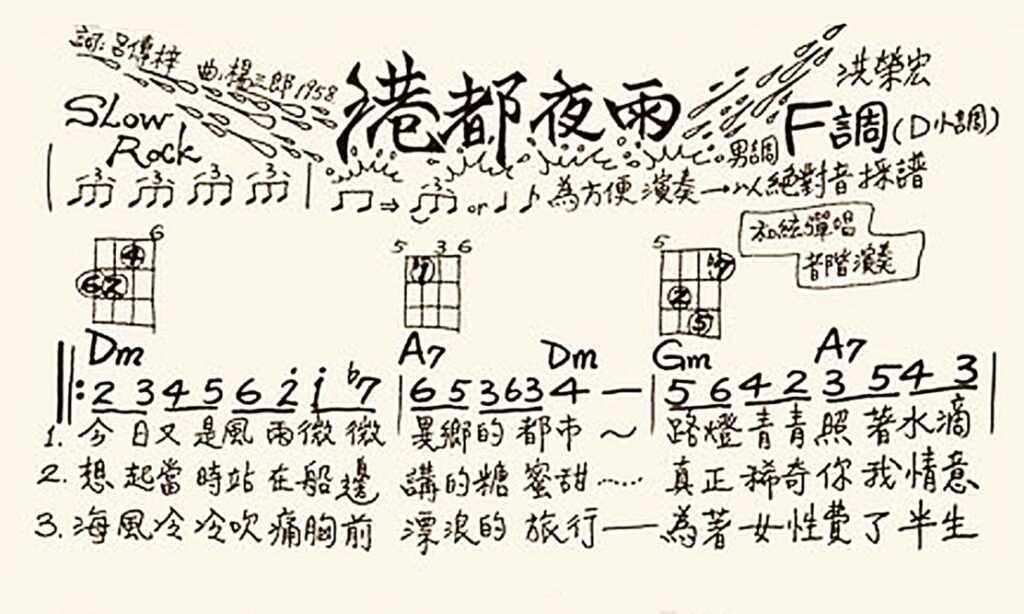 詞:呂傳梓 曲:楊三郎 1958
港都夜雨
洪榮宏
SLow Rock
F調(D小調)
男調
3 3 3 3
⇒ 3 or ♩ ♪ 為方便演奏→以絕對音採譜
和絃彈唱
音階演奏
6 5 3 6 5
4 6 2 1 b7 2 5
Dm A7 Dm Gm A7
2 3 4 5 6 2 1 b7 | 6 5 3 6 3 4 — | 5 6 4 2 3 5 4 3 |
1. 今日又是風雨微微 異鄉的都市～ 路燈青青照著水滴
2. 想起當時站在船邊 講的糖蜜甜…… 真正稀奇你我情意
3. 海風冷冷吹痛胸前 漂浪的旅行— 為著女性費了半生